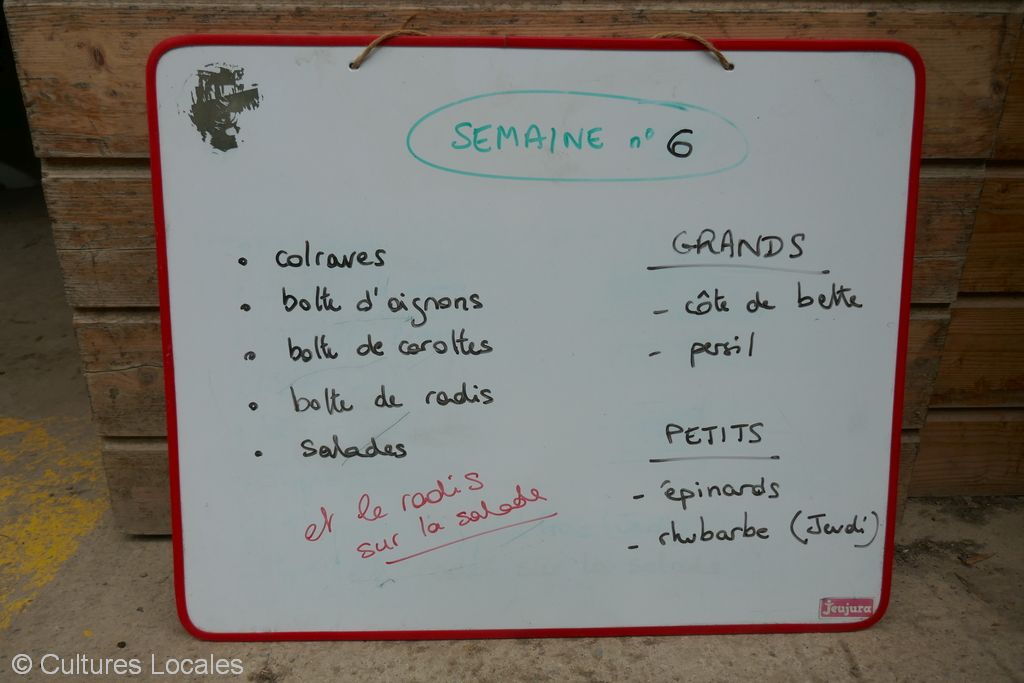 SEMAINE n° 6
• colraves
• botte d'oignons
• botte de carottes
• botte de radis
• salades
et le radis
sur la salade
GRANDS
- côte de bette
- persil
PETITS
- épinards
- rhubarbe (Jeudi)
Jeujura
© Cultures Locales